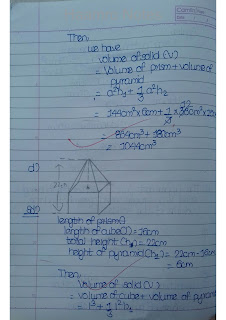 Then,
we have
volume of solid (V)
= Volume of prism + volume of
pyramid
= a²h₁ + 1/3 a²h₂
= 864cm³ + 180cm³
= 1044cm³
d)
Solⁿ
length of prism
length of cube(l) = 16cm
total height (h₁) = 22cm
height of pyramid(h₂) = 22cm - 16cm
= 6cm
Then,
Volume of solid (V)
= volume of cube + volume of pyramid
= l³ + 1/3 l²h₂